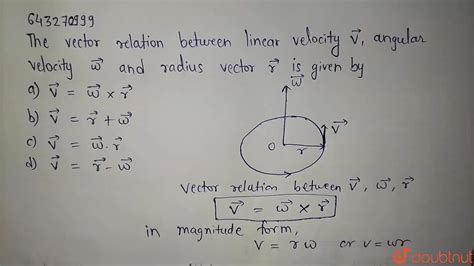 643270999
The vector relation between linear velocity v⃗, angular
velocity ω⃗ and radius vector r⃗ is given by
a) v⃗ = ω⃗ × r⃗
b) v⃗ = r⃗ + ω⃗
c) v⃗ = ω⃗ . r⃗
d) v⃗ = r⃗ - ω⃗
ω⃗
v⃗
O
r
Vector relation between v⃗, ω⃗, r⃗
v⃗ = ω⃗ × r⃗
in magnitude form,
v = rω or v = ωr
doubtnut